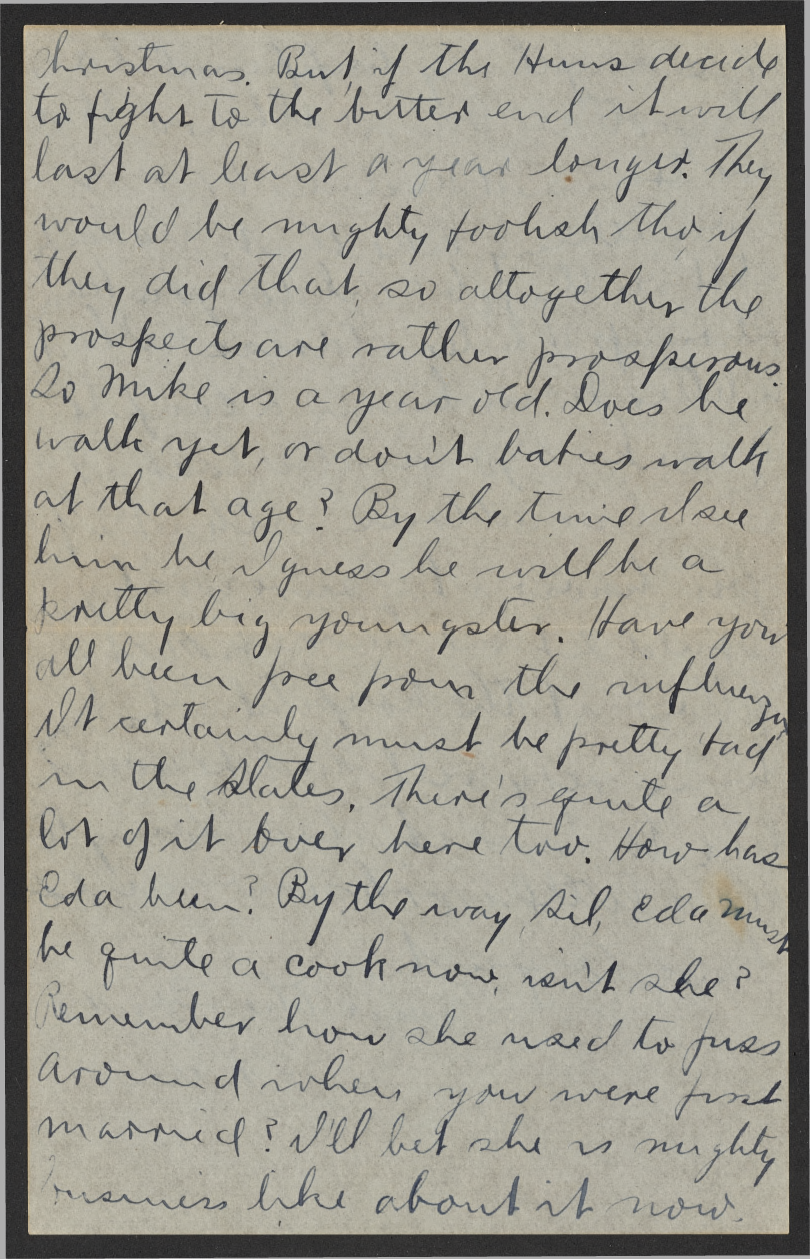 Christmas. But, if the Huns decide
to fight to the bitter end it will
last at least a year longer. They
would be mighty foolish tho, if
they did that, so altogether the
prospects are rather prosperous.
So Mike is a year old. Does he
walk yet, or don't babies walk
at that age? By the time I see
him he, I guess he will be a
pretty big youngster. Have you
all been free from the influenza
It certainly must be pretty bad
in the States. There's quite a
lot of it over here too. How has
Eda been? By the way, Sid, Eda must
be quite a cook now, isn't she?
Remember how she used to fuss
around when you were first
married? I'll bet she is mighty
business like about it now.